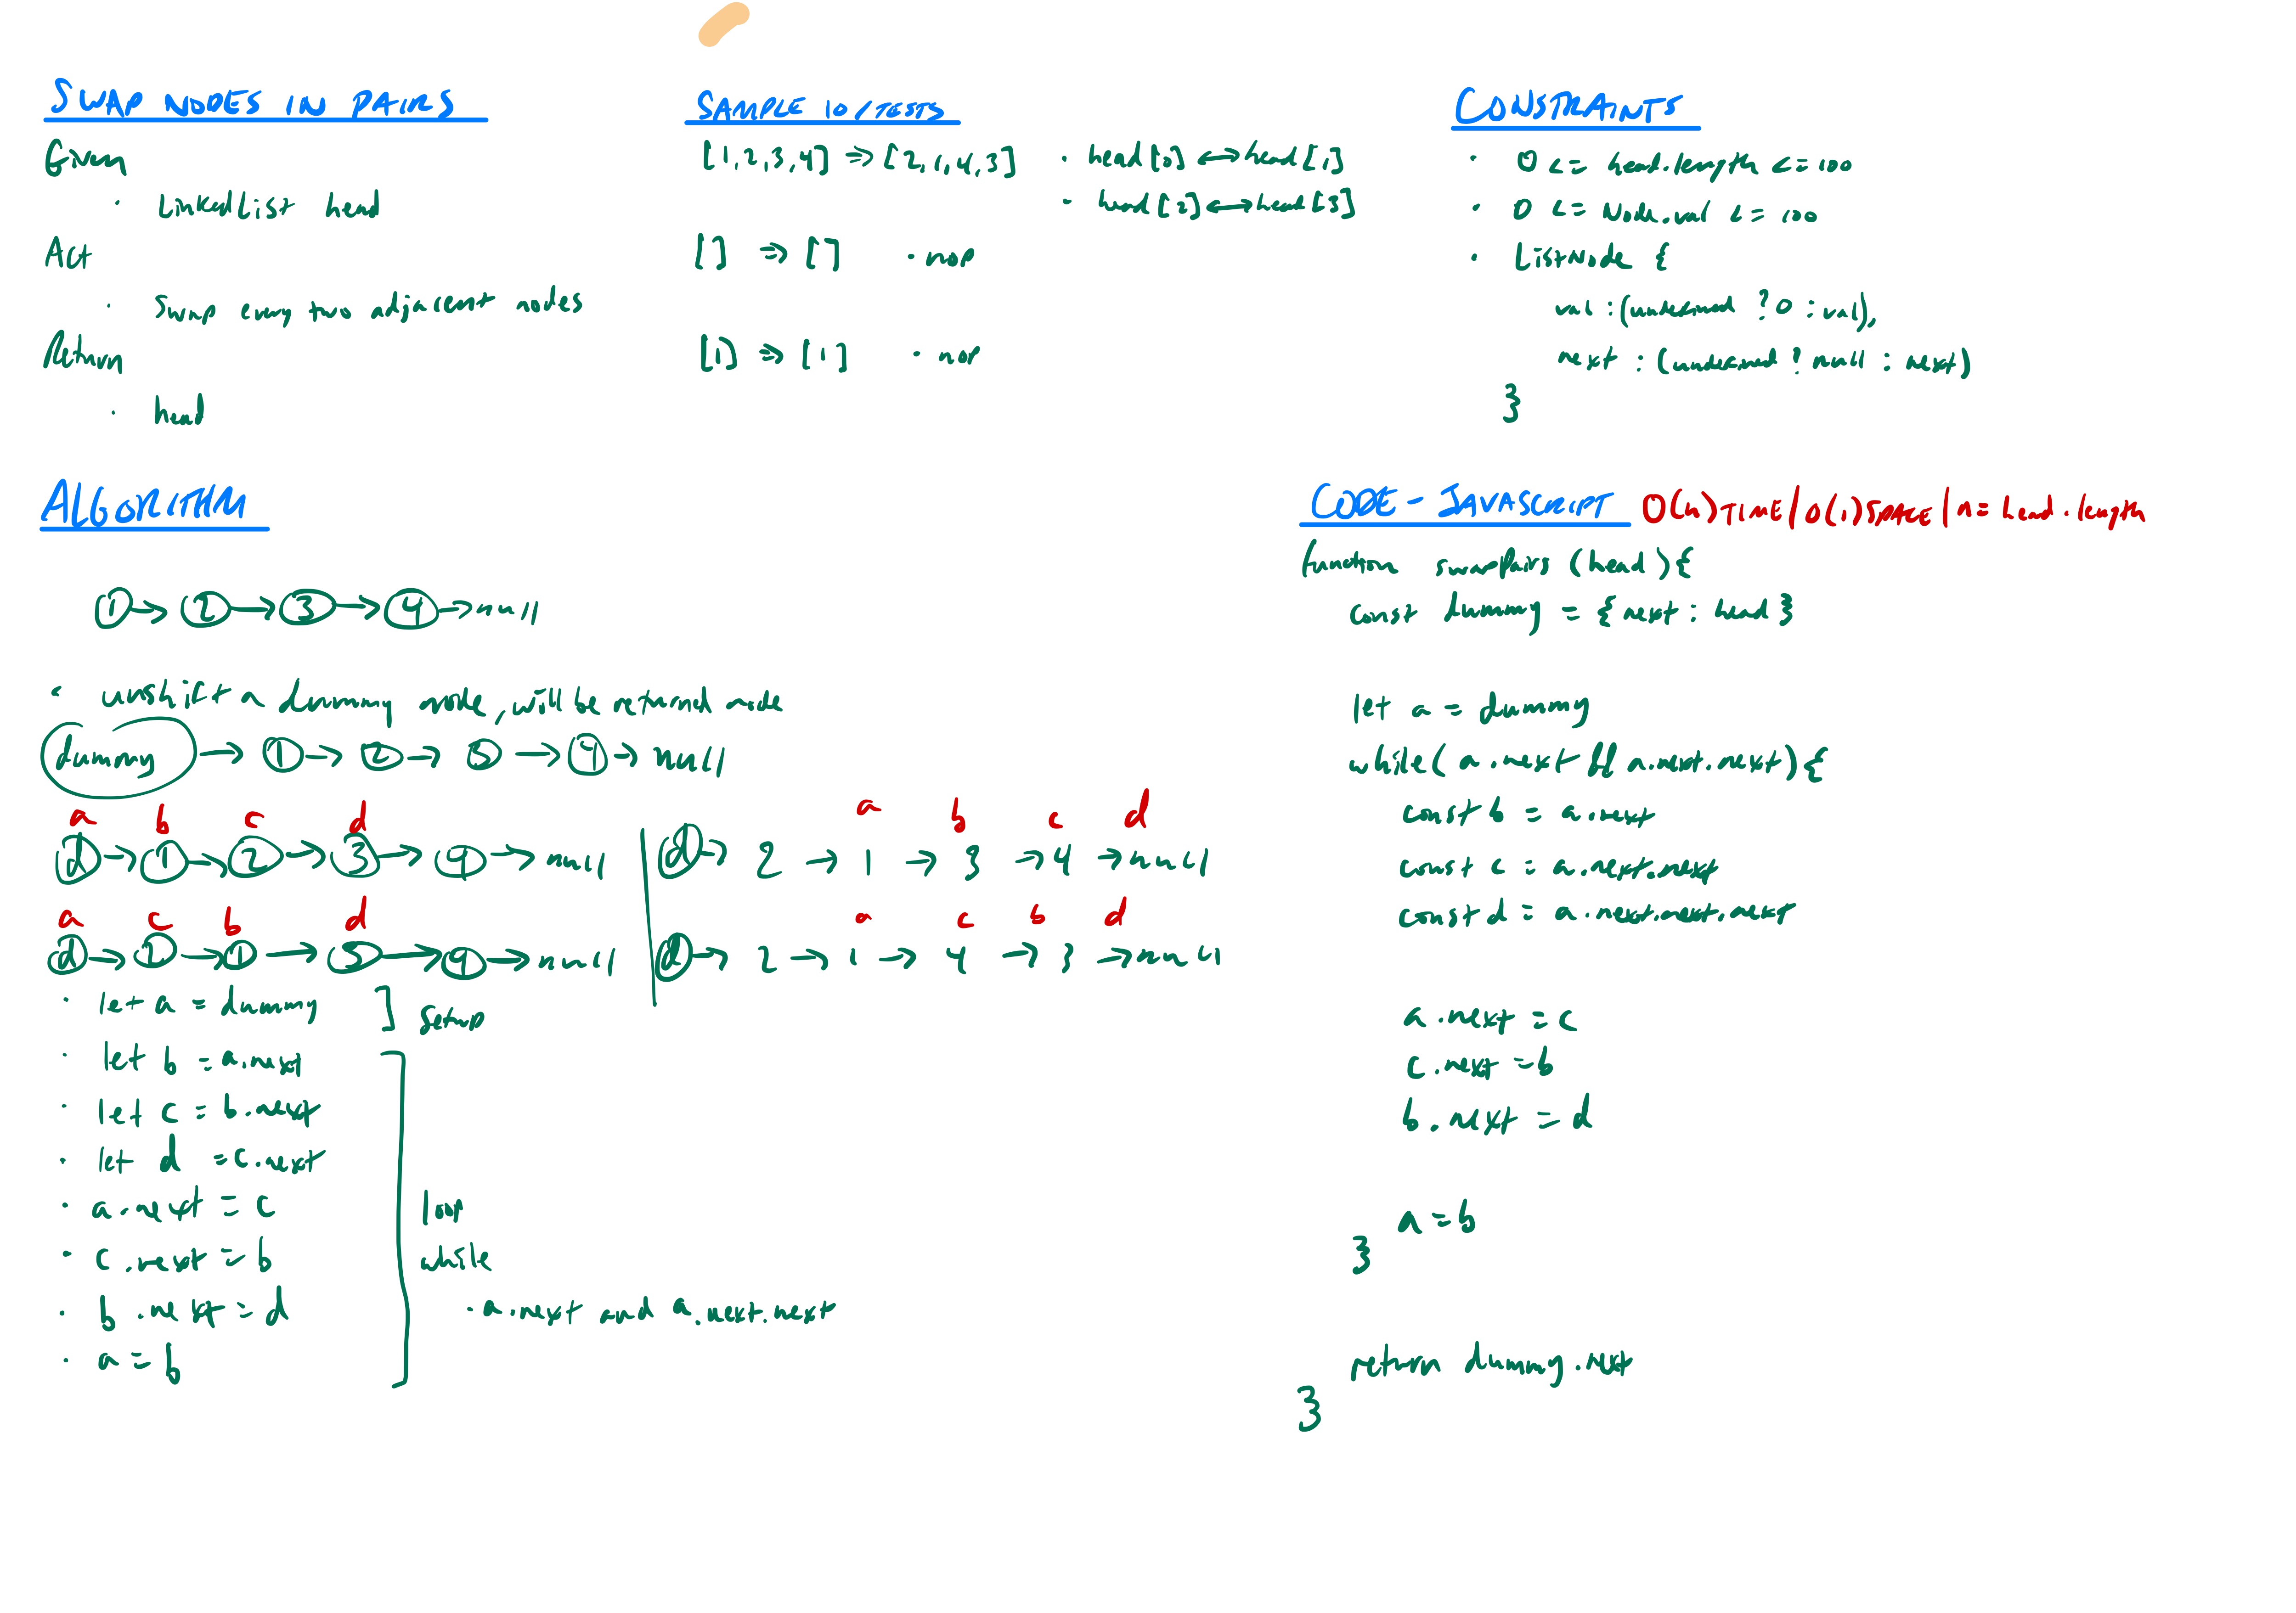 SWAP NODES IN PAIRS
Given
· LinkedList head
Act
· Swap every two adjacent nodes
Return
· head
SAMPLE IO/TESTS
[1,2,3,4] => [2,1,4,3] · head[0] <-> head[1]
· head[2] <-> head[3]
[] => [] · nop
[1] => [1] · nop
CONSTRAINTS
· 0 <= head.length <= 100
· 0 <= Node.val <= 100
· ListNode {
val : (undefined ? 0 : val),
next : (undefined ? null : next)
}
ALGORITHM
1 → 2 → 3 → 4 → null
· unshift a dummy node, will be returned node
dummy → 1 → 2 → 3 → 4 → null
a b c d
d → 1 → 2 → 3 → 4 → null
a c b d
d → 2 → 1 → 3 → 4 → null
a b c d
d → 2 → 1 → 3 → 4 → null
a c b d
d → 2 → 1 → 4 → 3 → null
· let a = dummy ] setup
· let b = a.next
· let c = b.next
· let d = c.next
· a.next = c
· c.next = b
· b.next = d
· a = b
loop
while
· a.next and a.next.next
CODE - JAVASCRIPT O(n) TIME / O(1) SPACE / n = head.length
function swapPairs (head) {
const dummy = { next : head }
let a = dummy
while( a.next && a.next.next) {
const b = a.next
const c = a.next.next
const d = a.next.next.next
a.next = c
c.next = b
b.next = d
a = b
}
return dummy.next
}